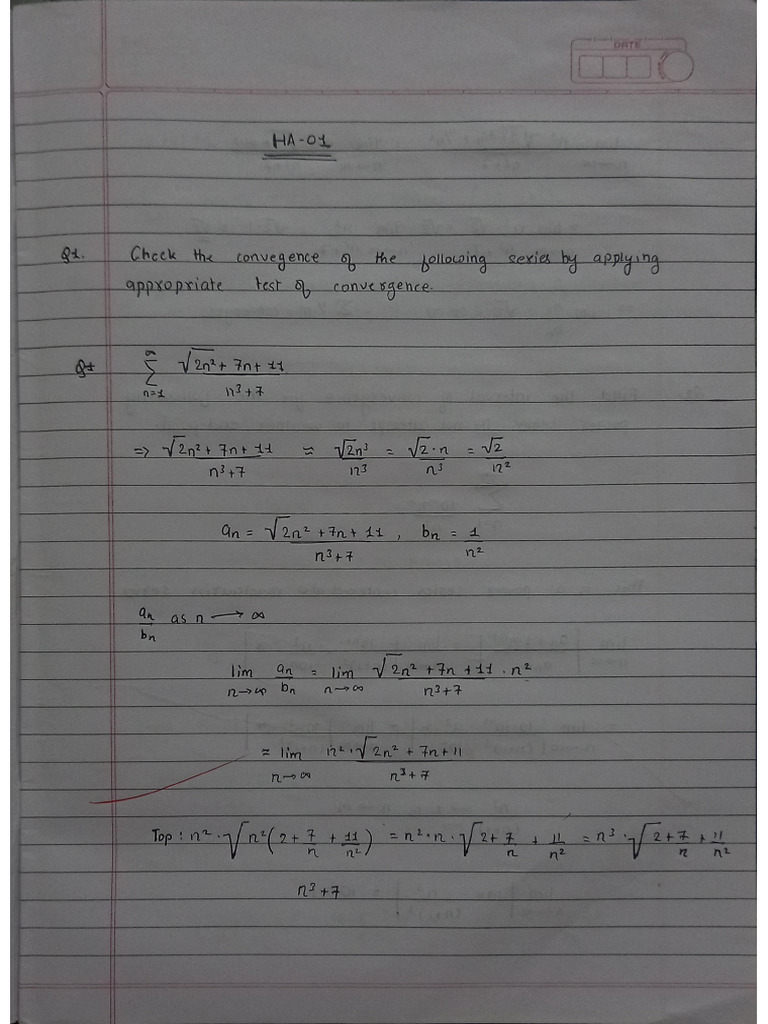 DATE
HA-01
Q1. Check the convegence of the following series by applying
appropriate test of convergence.
Q1 ∞∑n=1 √2n²+7n+11 / n³+7
=> √2n²+7n+11 / n³+7 ≈ √2n³ / n³ = √2·n / n³ = √2 / n²
an = √2n²+7n+11 / n³+7 , bn = 1 / n²
an / bn as n ⟶ ∞
lim n→∞ an / bn = lim n→∞ √2n²+7n+11 / n³+7 · n²
≈ lim n→∞ n²·√2n²+7n+11 / n³+7
Top : n²·√n²(2+7/n+11/n²) = n²·n·√2+7/n+11/n² = n³·√2+7/n+11/n²
n³+7